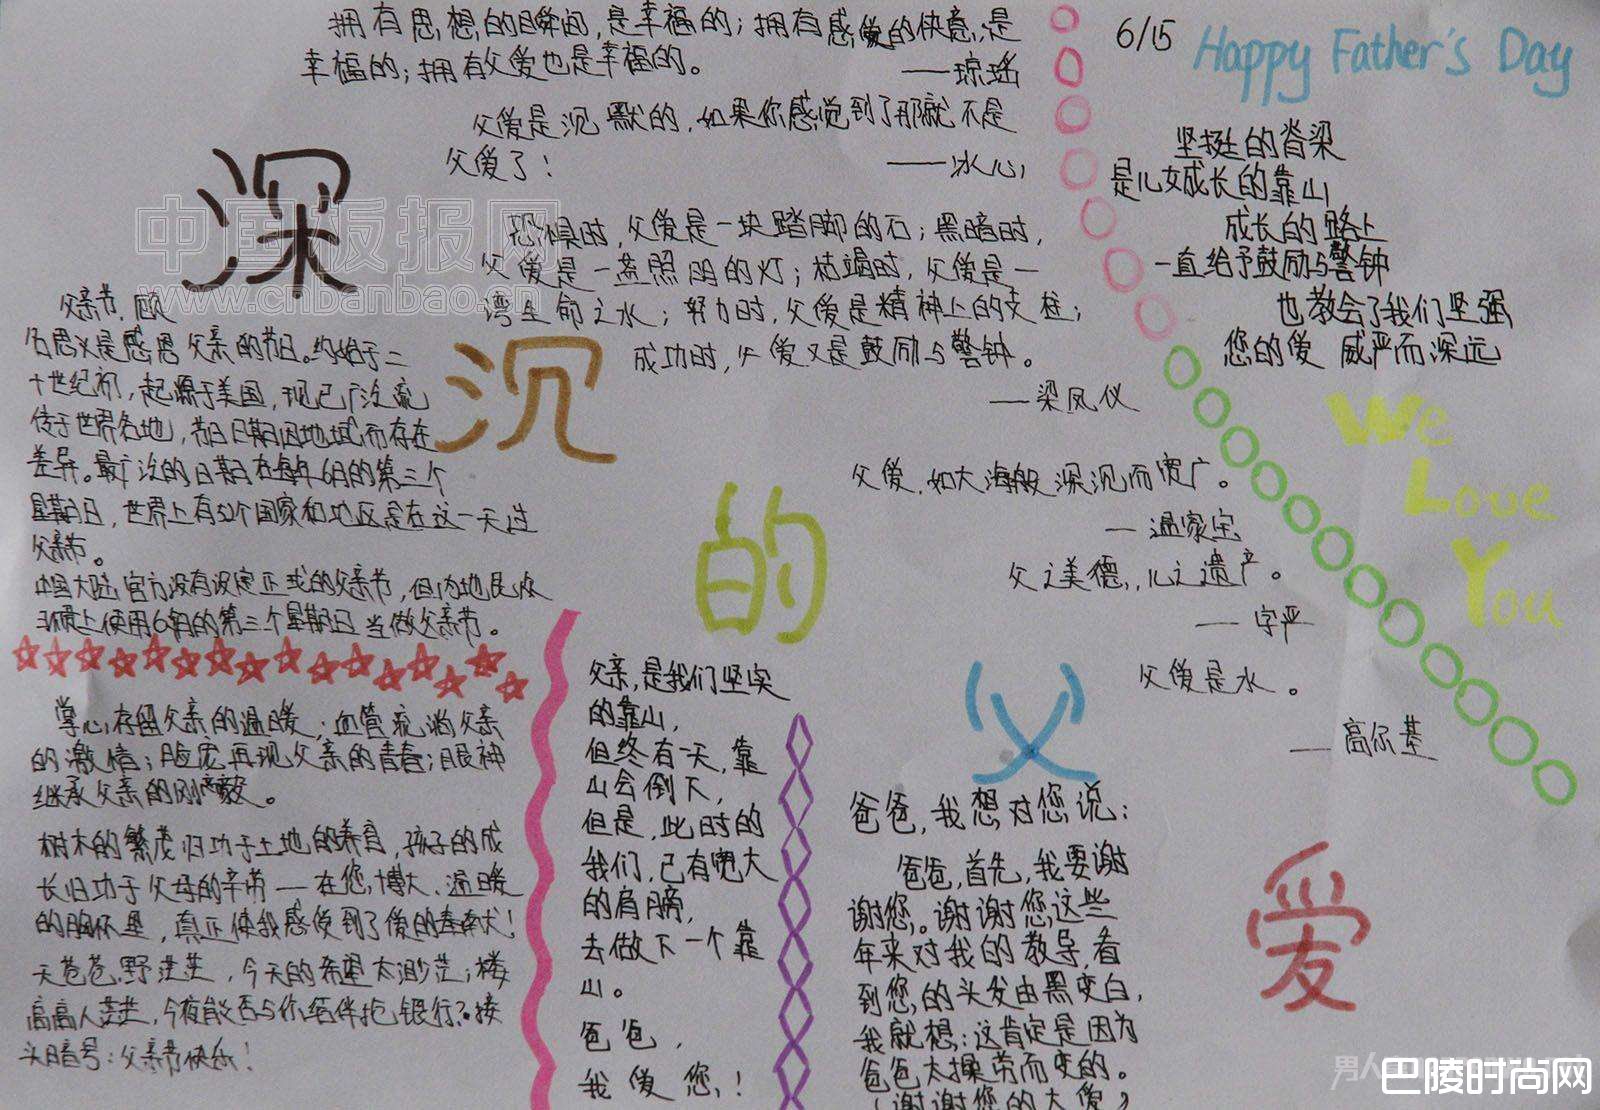 拥有思想的瞬间,是幸福的;拥有感爱的快意,是
幸福的;拥有父爱也是幸福的。
——琼瑶
父爱是沉默的,如果你感觉到了那就不是
父爱了!
——冰心
恐惧时,父爱是一块踏脚的石;黑暗时,
父爱是一盏照明的灯;枯竭时,父爱是一
湾生命之水;努力时,父爱是精神上的支柱;
成功时,父爱又是鼓励与警钟。
—梁凤仪
父爱,如大海般深沉而宽广。
—温家宝
父之美德,儿之遗产。
——字严
父爱是水。
——高尔基
6/15 Happy Father's Day
坚挺的脊梁
是儿女成长的靠山
成长的路上
一直给予鼓励与警钟
也教会了我们坚强
您的爱 威严而深远
We
Love
You
深
沉
的
父
爱
父亲节,顾
名思义是感恩父亲的节日。约始于二
十世纪初,起源于美国,现已广泛流
传于世界各地,节日日期因地域而存在
差异。最广泛的日期在每年6月的第三个
星期日,世界上有52个国家和地区是在这一天过
父亲节。
中国大陆官方没有设定正式的父亲节,但内地民众
习惯上使用6月的第三个星期日当做父亲节。
掌心存留父亲的温暖;血管流淌父亲
的激情;脸庞再现父亲的青春;眼神
继承父亲的刚毅。
树木的繁茂归功于土地的养育,孩子的成
长归功于父母的辛劳—在您博大、温暖
的胸怀里,真正使我感受到了爱的奉献!
天苍苍,野茫茫,今天的希望太渺茫;楼
高高人茫茫,今夜能否与你结伴抢银行?接
头暗号:父亲节快乐!
父亲,是我们坚实
的靠山,
但终有一天,靠
山会倒下,
但是,此时的
我们,已有宽大
的肩膀,
去做下一个靠
山。
爸爸,
我爱您!
爸爸,我想对您说:
爸爸,首先,我要谢
谢您。谢谢您这些
年来对我的教导,看
到您的头发由黑变白,
我就想:这肯定是因为
爸爸太操劳而变的。
谢谢您的大爱
中国板报网
www.cnbanbao.cn
巴陵时尚网